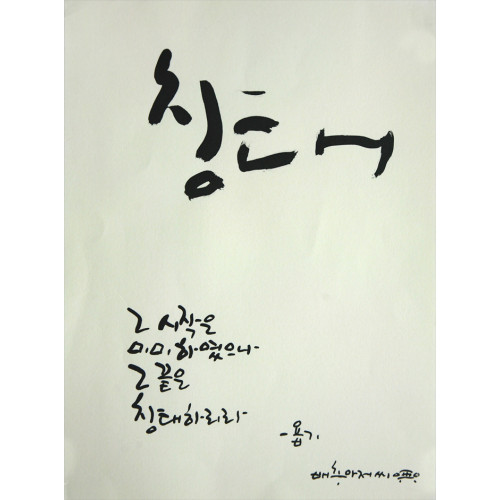 창대
그 시작은
미미하였으나
그 끝은
창대하리라
-욥기
배추아저씨